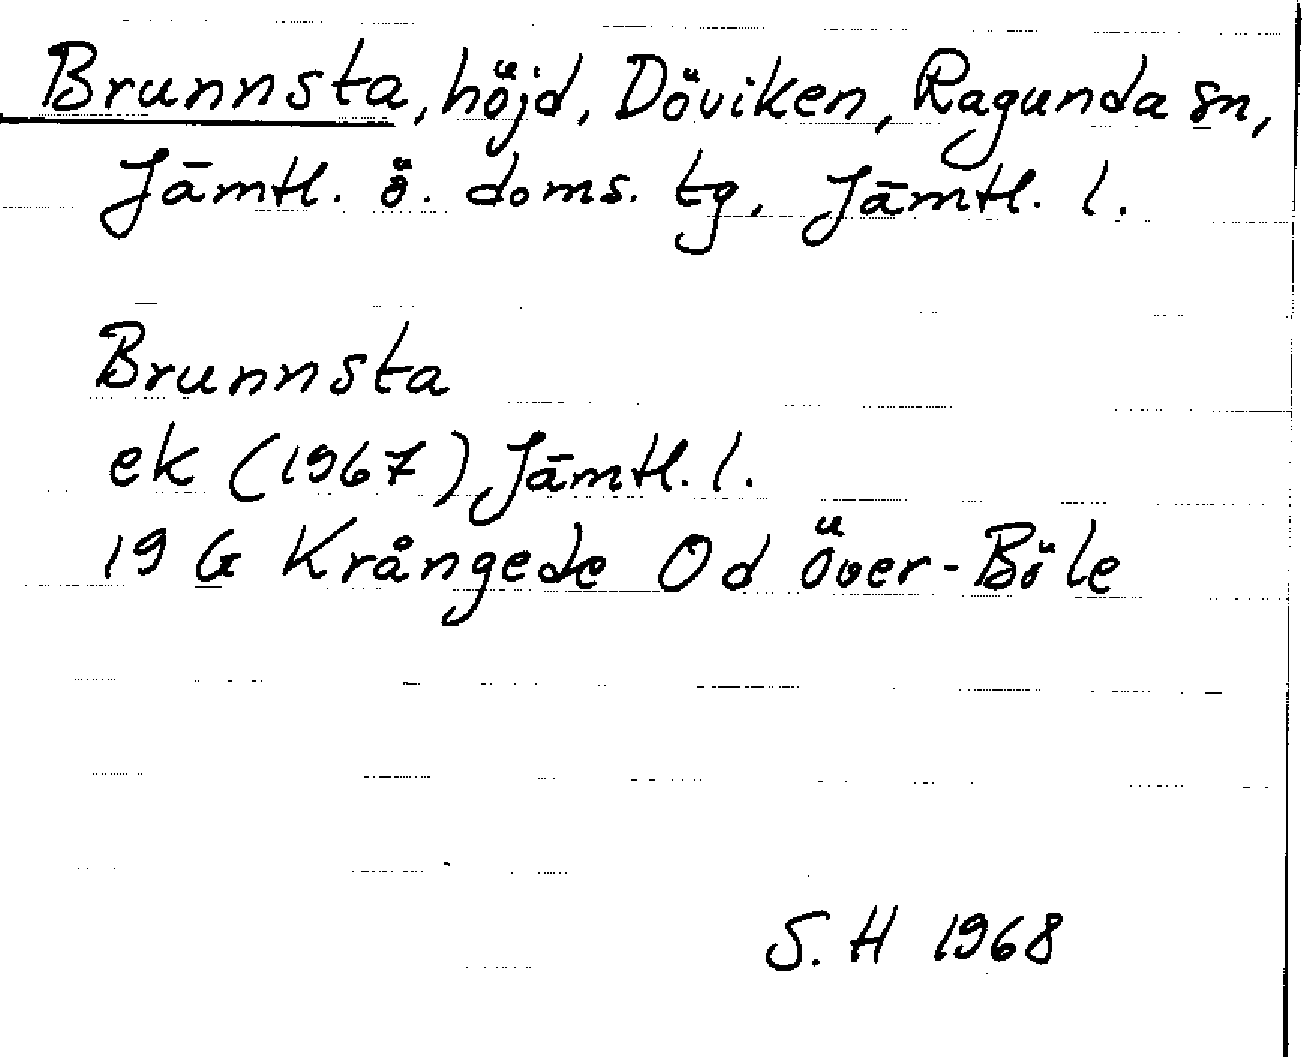 Brunnsta, höjd, Döviken, Ragunda sn,
Jämtl. ö. doms. tg, Jämtl. l.
Brunnsta
ek (1967) Jämtl. l.
19 G Krångede Od Över-Böle
S. H 1968